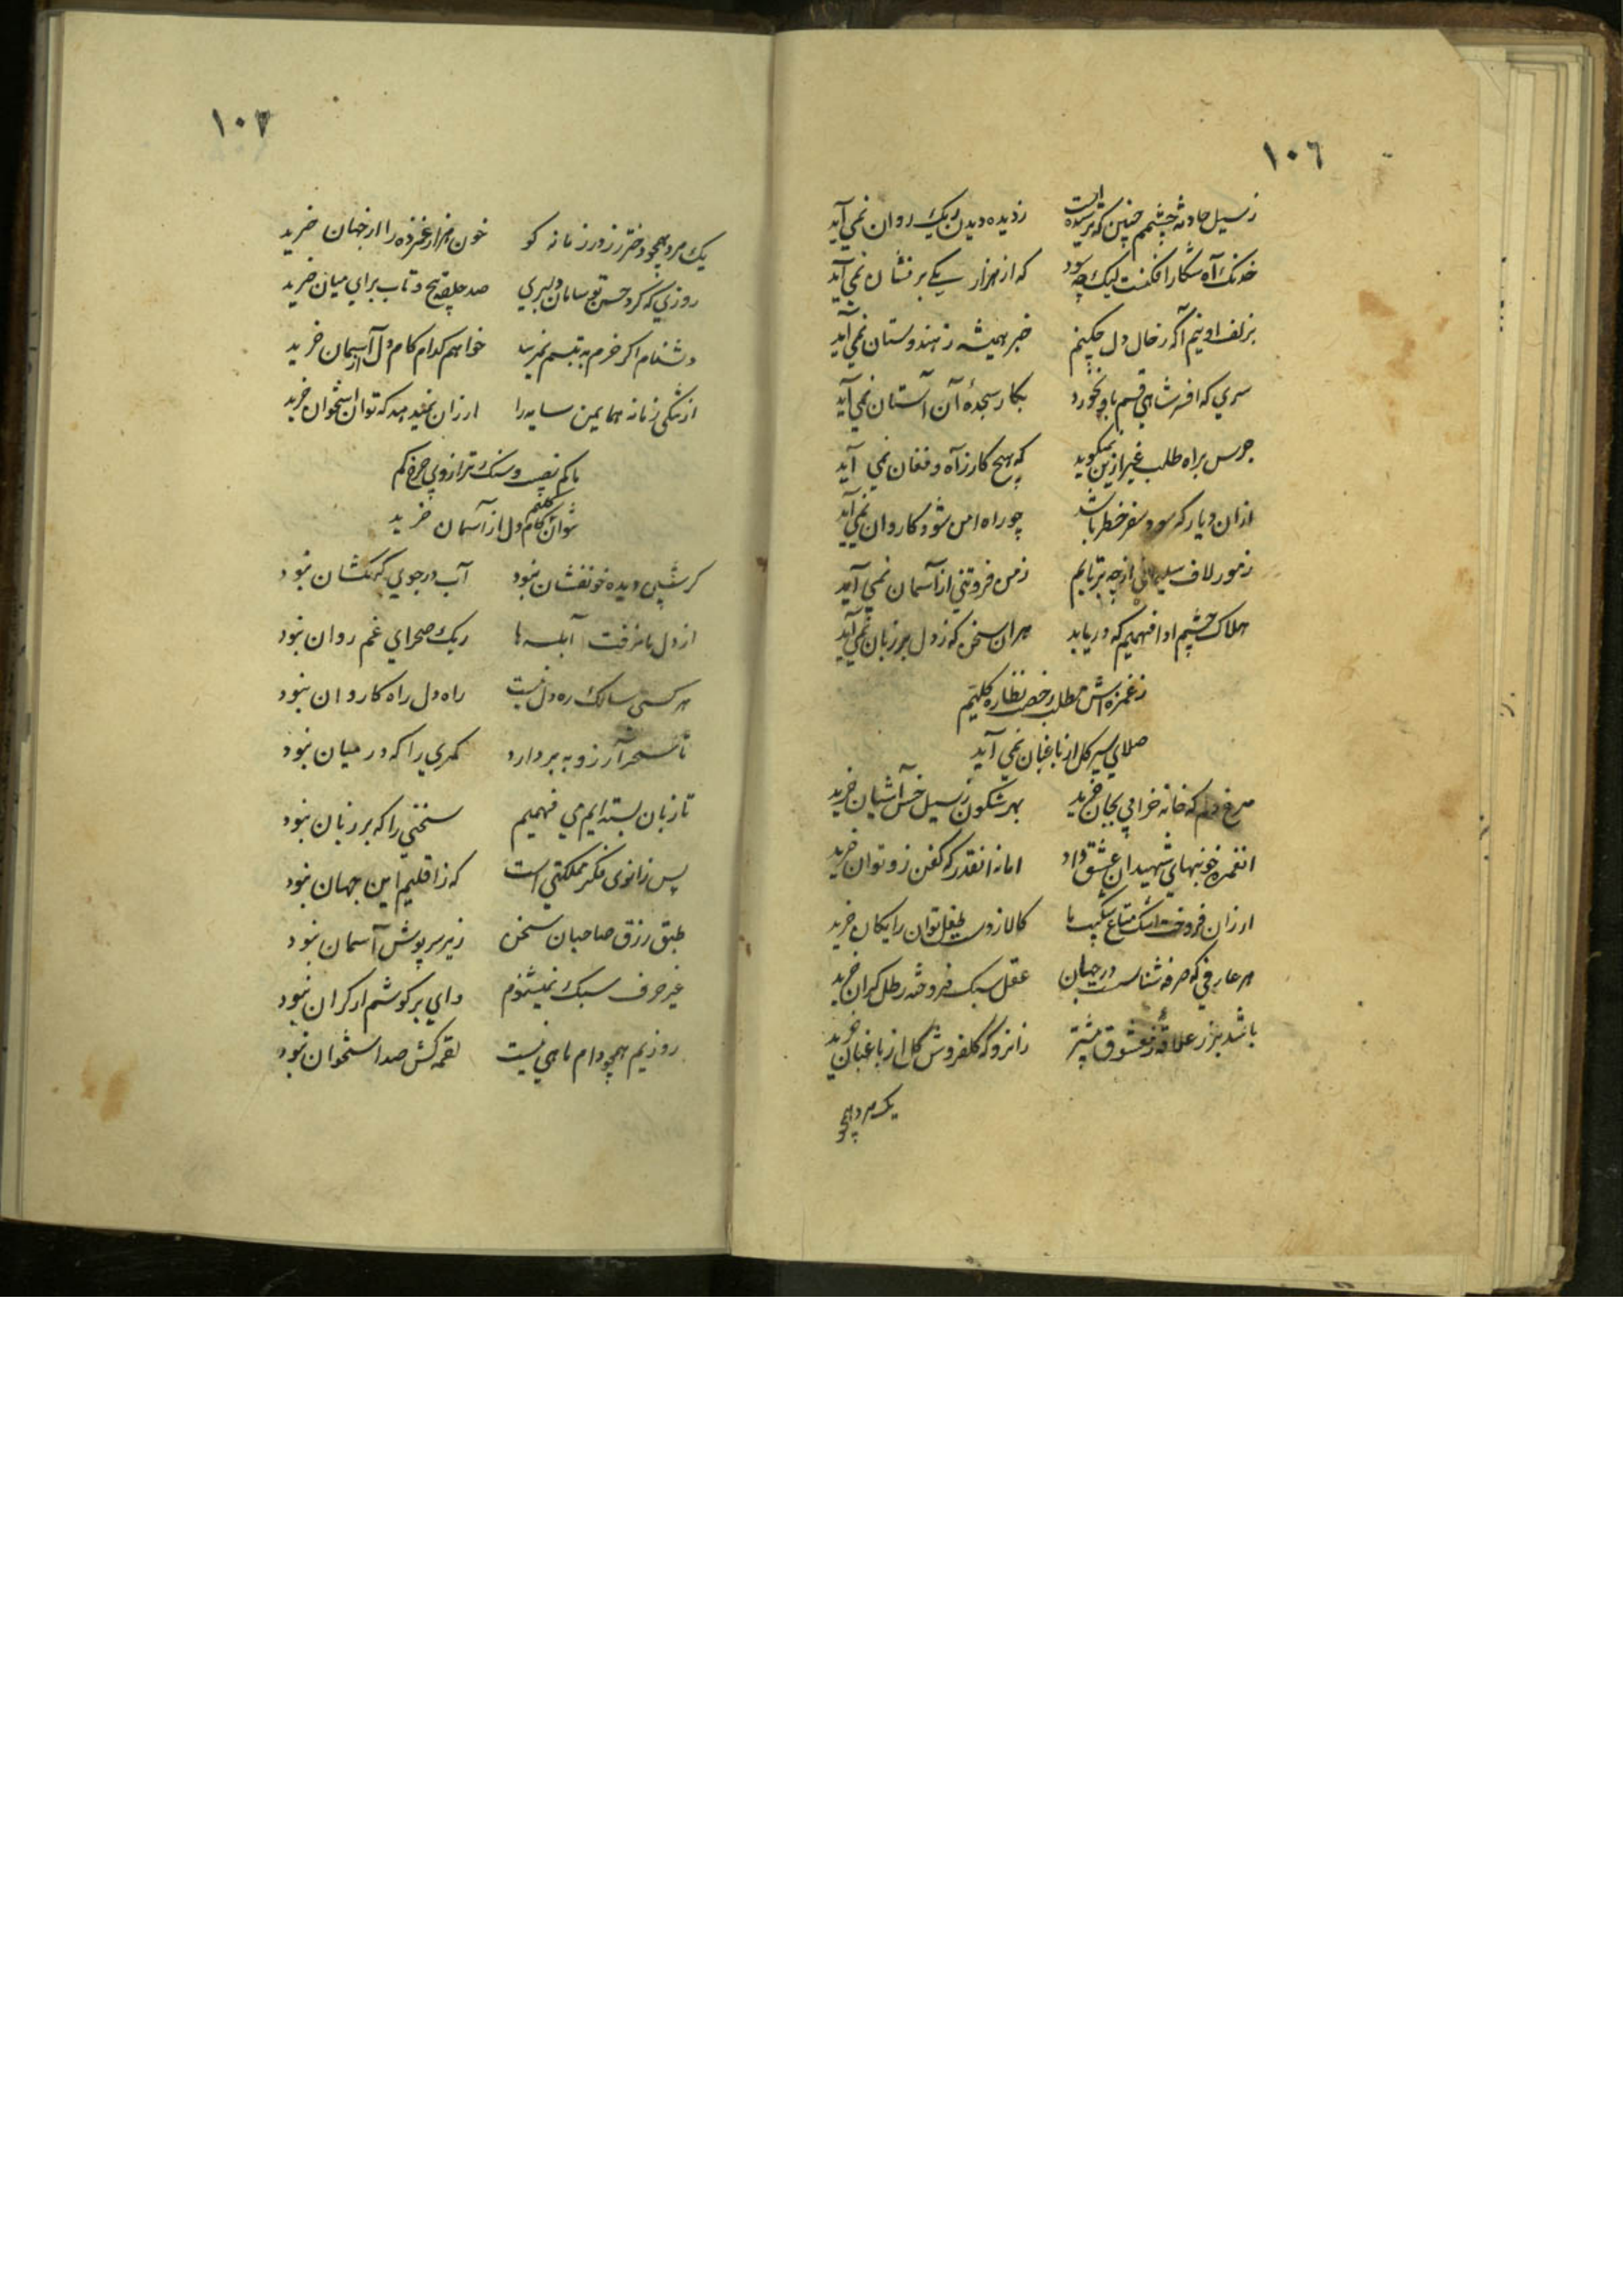 ١٠٦
ز سیل حادثه چشمم چنین که ترسیده است زدیده دیدن ریک روان نمی آید
خدنک آه شکار افکنست لیک چه سود که از هزار یکی بر نشان نمی آید
بزلف او نیم آکه ز خال دل چکنم خبر همیشه ز هندوستان نمی آید
سری که افسر شاهی قسم باو نخورد بکار سجدهٔ آن آستان نمی آید
جرس براه طلب غیر ازین نمیکوید که هیچ کار ز آه و فغان نمی آید
ازان دیار که سود سفر خطر باشد چو راه امن شود کاروان نمی آید
ز مور لاف سلیمانی از چه برتابم ز من فروتنی از آسمان نمی آید
هلاک چشم ادا فهمیم که دریابد هران سخن که ز دل بر زبان نمی آید
ز غمزه اش مطلب رخصت نظاره کلیم
صلای سیر کل از باغبان نمی آید
مرغ دلم که خانه خرابی بجان خرید بهر شکون ز سیل خس آشیان خرید
انغمزه خونبهای شهیدان عشق داد اما نه انقدر که کفن زو توان خرید
ارزان فروخت اشک متاع شکیب ما کالا ز دست طفل توان رایکان خرید
هر عارفی که صرفه شناست در جهان عقل سبک فروخته رطل کران خرید
باشد بزر علاقهٔ معشوق بیشتر زانرو که کلفروش کل از باغبان خرید
یک مرد همچو
١٠٧
یک مرد همچو دختر رز در زمانه کو خون هزار غمزده را از جهان خرید
روزی که کرد حسن تو سامان دلبری صد حلقه پیچ و تاب برای میان خرید
دشنام اکر خرم به تبسم نمیرسد خواهم کدام کام دل از آسمان خرید
از تنکی زمانه همایمن سایه را ارزان نمیدهد که توان استخوان خرید
با کم نصیب و سنک ترازوی چرخ کم
نتوان کلیم کام دل از آسمان خرید
کر شبی دیده خونفشان نبود آب در جوی کهکشان نبود
از دل ما نرفت آبله ها ریک صحرای غم روان نبود
هر کسی سالک ره دل نیست راه دل راه کاروان نبود
تا سحر آرزو به بر دارد کمری را که در میان نبود
تا زبان بسته ایم می فهمیم سخنی را که بر زبان نبود
پس زانوی فکر مملکتی است که ز اقلیم این جهان نبود
طبق رزق صاحبان سخن زیر سرپوش آسمان نبود
غیر حرف سبک نمیشنوم وای بر کوشم ار کران نبود
روزیم همچو دام ماهی نیست لقمه کش صد استخوان نبود